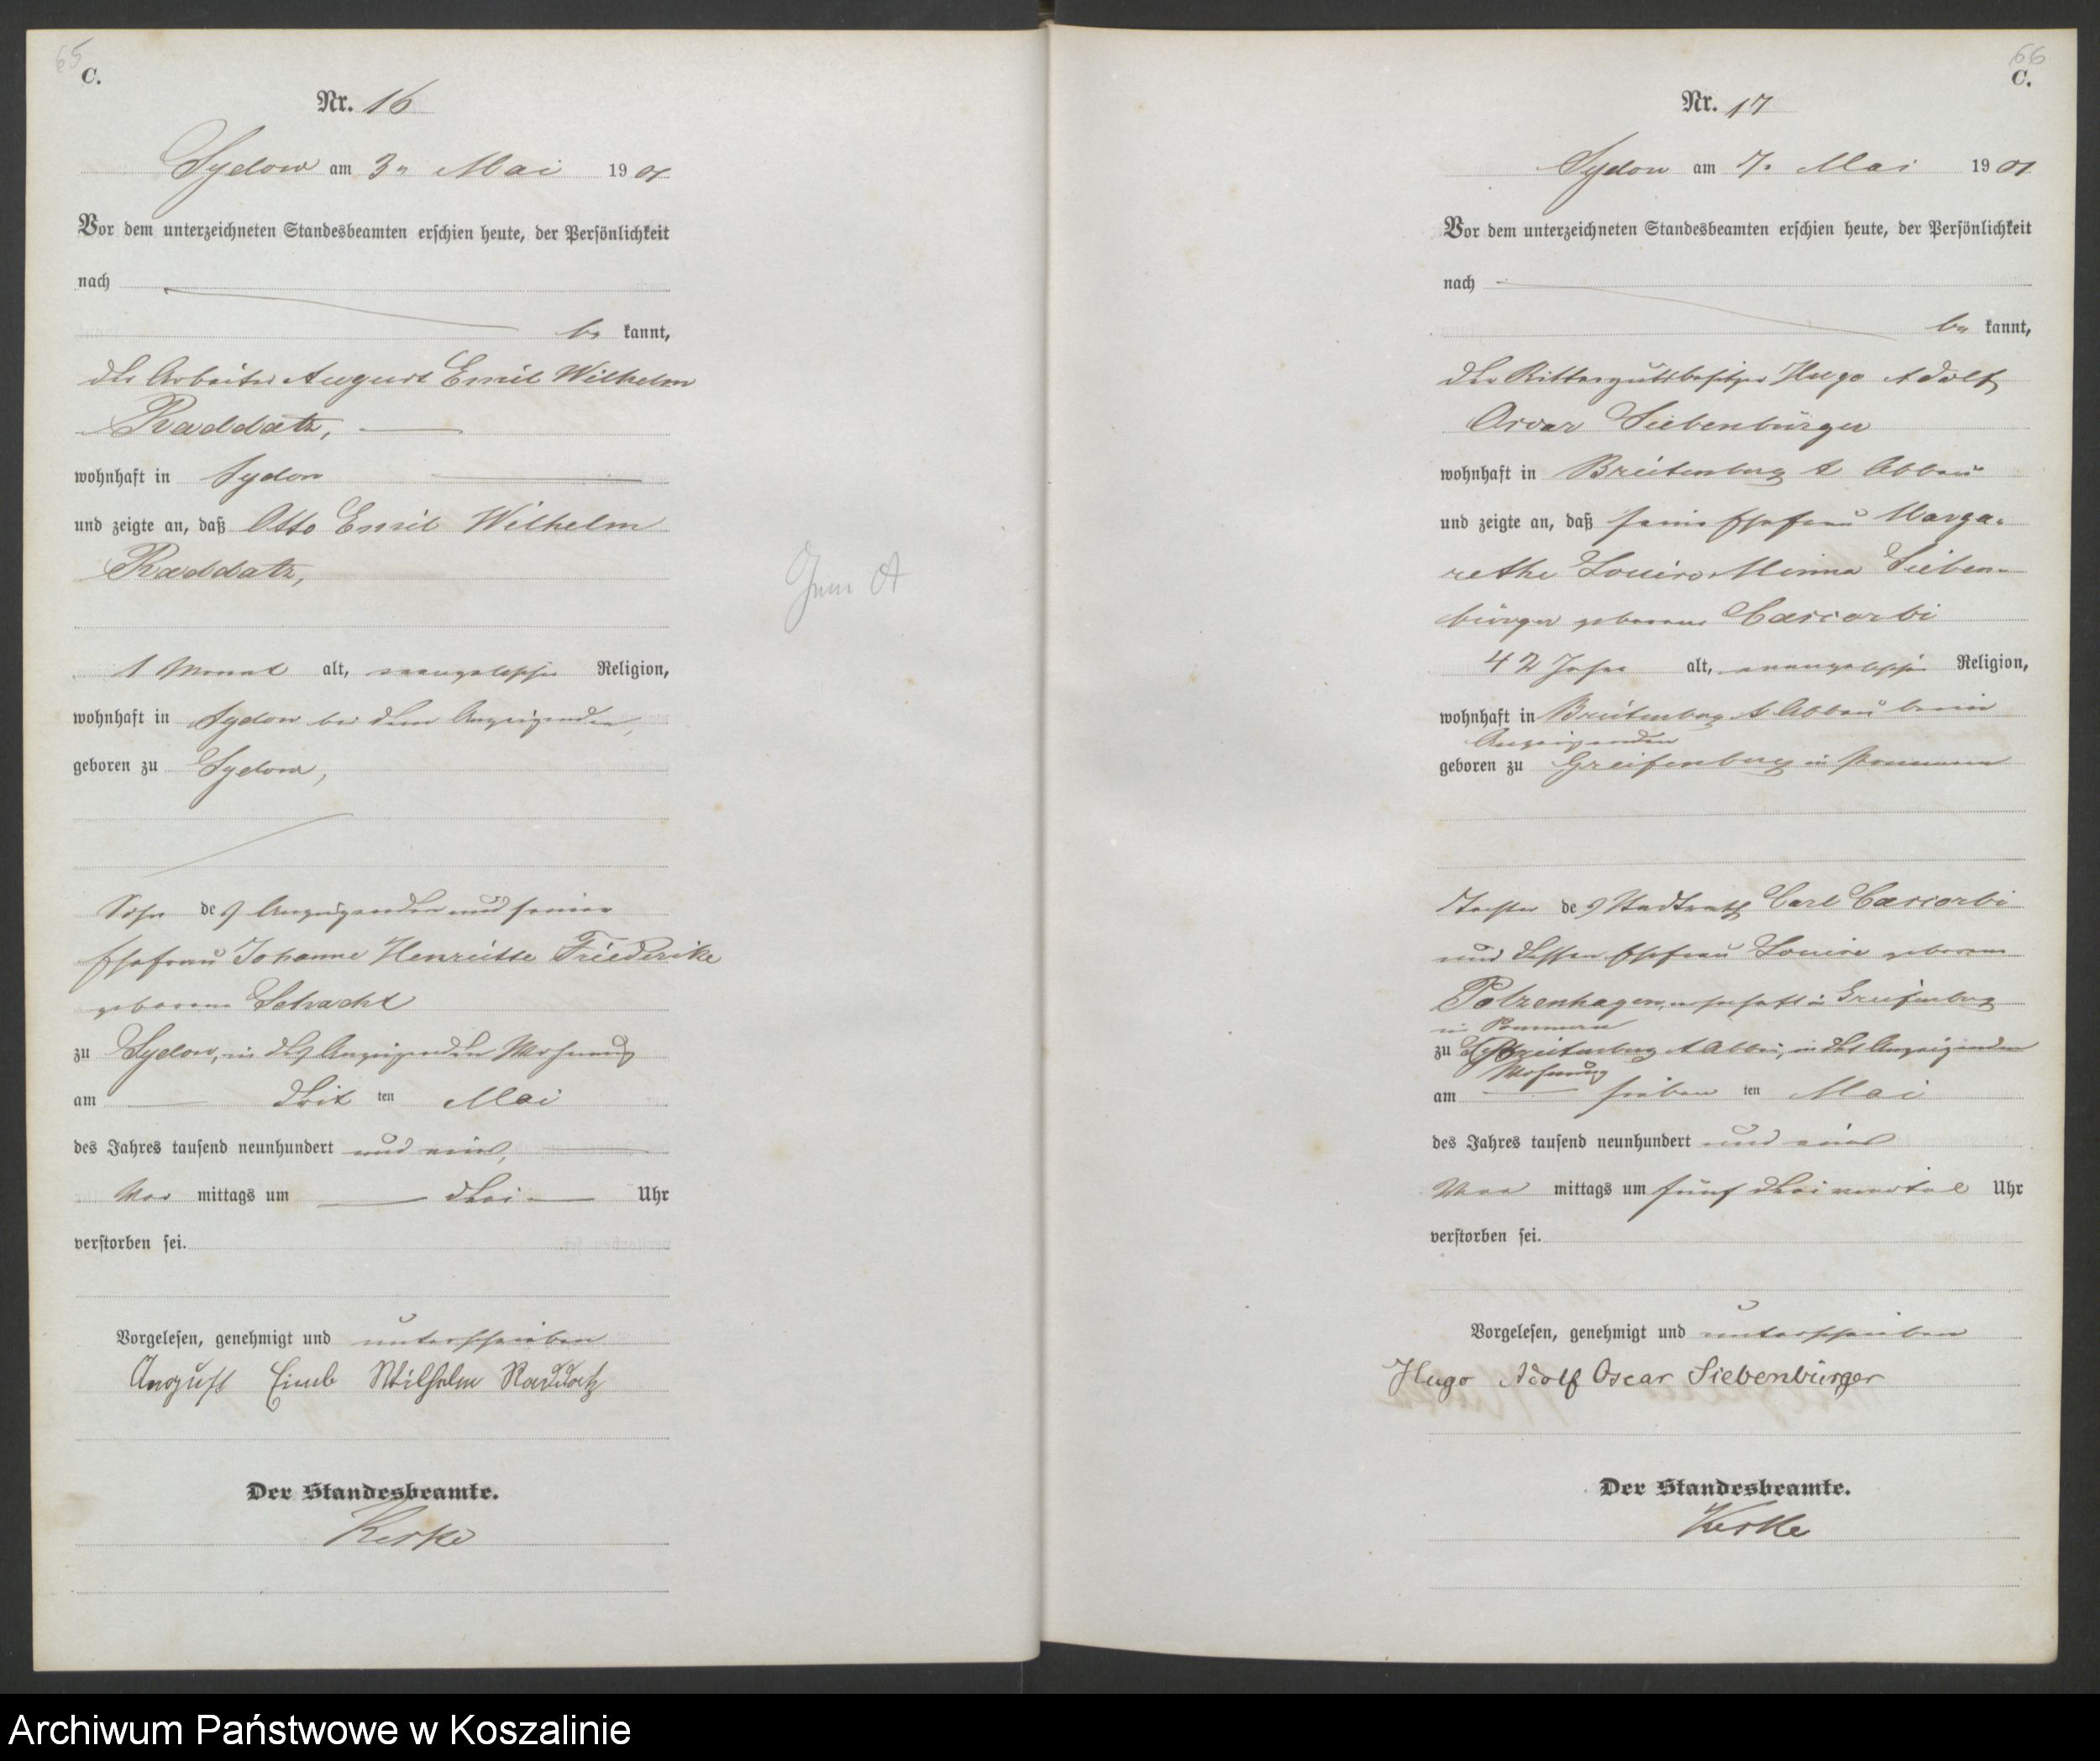 65
C.
Nr. 16
Sydow am 3n Mai 1901
Vor dem unterzeichneten Standesbeamten erschien heute, der Persönlichkeit
nach
be kannt,
der Arbeiter August Emil Wilhelm
Raddatz,
wohnhaft in Sydow
und zeigte an, daß Otto Emil Wilhelm
Raddatz,
1 Monat alt, evangelischer Religion,
wohnhaft in Sydow bei dem Anzeigenden,
geboren zu Sydow,
Sohn des Anzeigenden und seiner
Ehefrau Johanne Henriette Friederike
geborene Schacht
zu Sydow, in des Anzeigenden Wohnung
am drit ten Mai
des Jahres tausend neunhundert und eins,
Vor mittags um drei Uhr
verstorben sei.
Vorgelesen, genehmigt und unterschrieben
August Emil Wilhelm Raddatz
Der Standesbeamte.
Keske
66
C.
Nr. 17
Sydow am 7. Mai 1901
Vor dem unterzeichneten Standesbeamten erschien heute, der Persönlichkeit
nach
be kannt,
der Rittergutsbesitzer Hugo Adolf
Oscar Siebenbürger
wohnhaft in Breitenberg A Abbau
und zeigte an, daß seine Ehefrau Marga-
rethe Louise Minna Sieben-
bürger geborene Cascorbi
42 Jahre alt, evangelischer Religion,
wohnhaft in Breitenberg A Abbau beim
Anzeigenden
geboren zu Greifenberg in Pommern
Tochter des Stadtrath Carl Cascorbi
und dessen Ehefrau Louise geborene
Polzenhagen, wohnhaft in Greifenberg
in Pommern
zu Breitenberg A Abbau, in des Anzeigenden
Wohnung
am sieben ten Mai
des Jahres tausend neunhundert und eins
Vor mittags um fünf dreiviertel Uhr
verstorben sei.
Vorgelesen, genehmigt und unterschrieben
Hugo Adolf Oscar Siebenbürger
Der Standesbeamte.
Keske
Archiwum Państwowe w Koszalinie